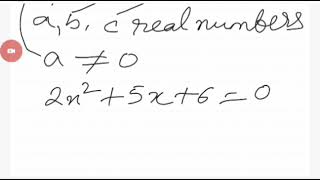 a, b, c real numbers
a ≠ 0
2x² + 5x + 6 = 0